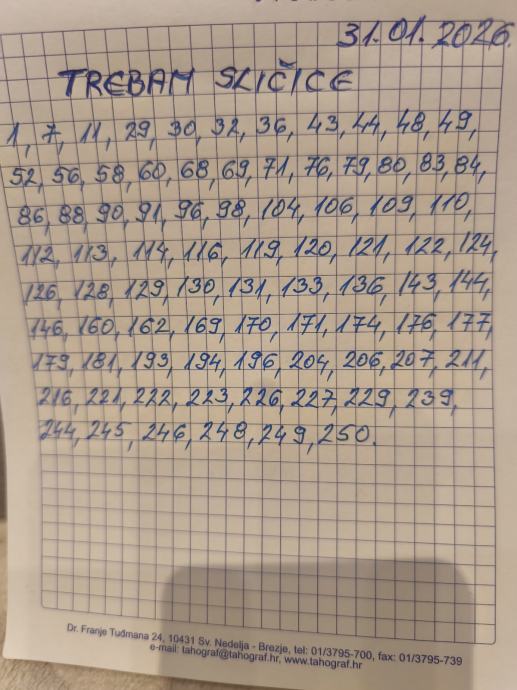 31.01.2026.
TREBAM SLIČICE
1, 7, 11, 29, 30, 32, 36, 43, 44, 48, 49,
52, 56, 58, 60, 68, 69, 71, 76, 79, 80, 83, 84,
86, 88, 90, 91, 96, 98, 104, 106, 109, 110,
112, 113, 114, 116, 119, 120, 121, 122, 124,
126, 128, 129, 130, 131, 133, 136, 143, 144,
146, 160, 162, 169, 170, 171, 174, 176, 177,
179, 181, 193, 194, 196, 204, 206, 207, 211,
216, 221, 222, 223, 226, 227, 229, 239,
244, 245, 246, 248, 249, 250.
Dr. Franje Tuđmana 24, 10431 Sv. Nedelja - Brezje, tel: 01/3795-700, fax: 01/3795-739
e-mail: tahograf@tahograf.hr, www.tahograf.hr